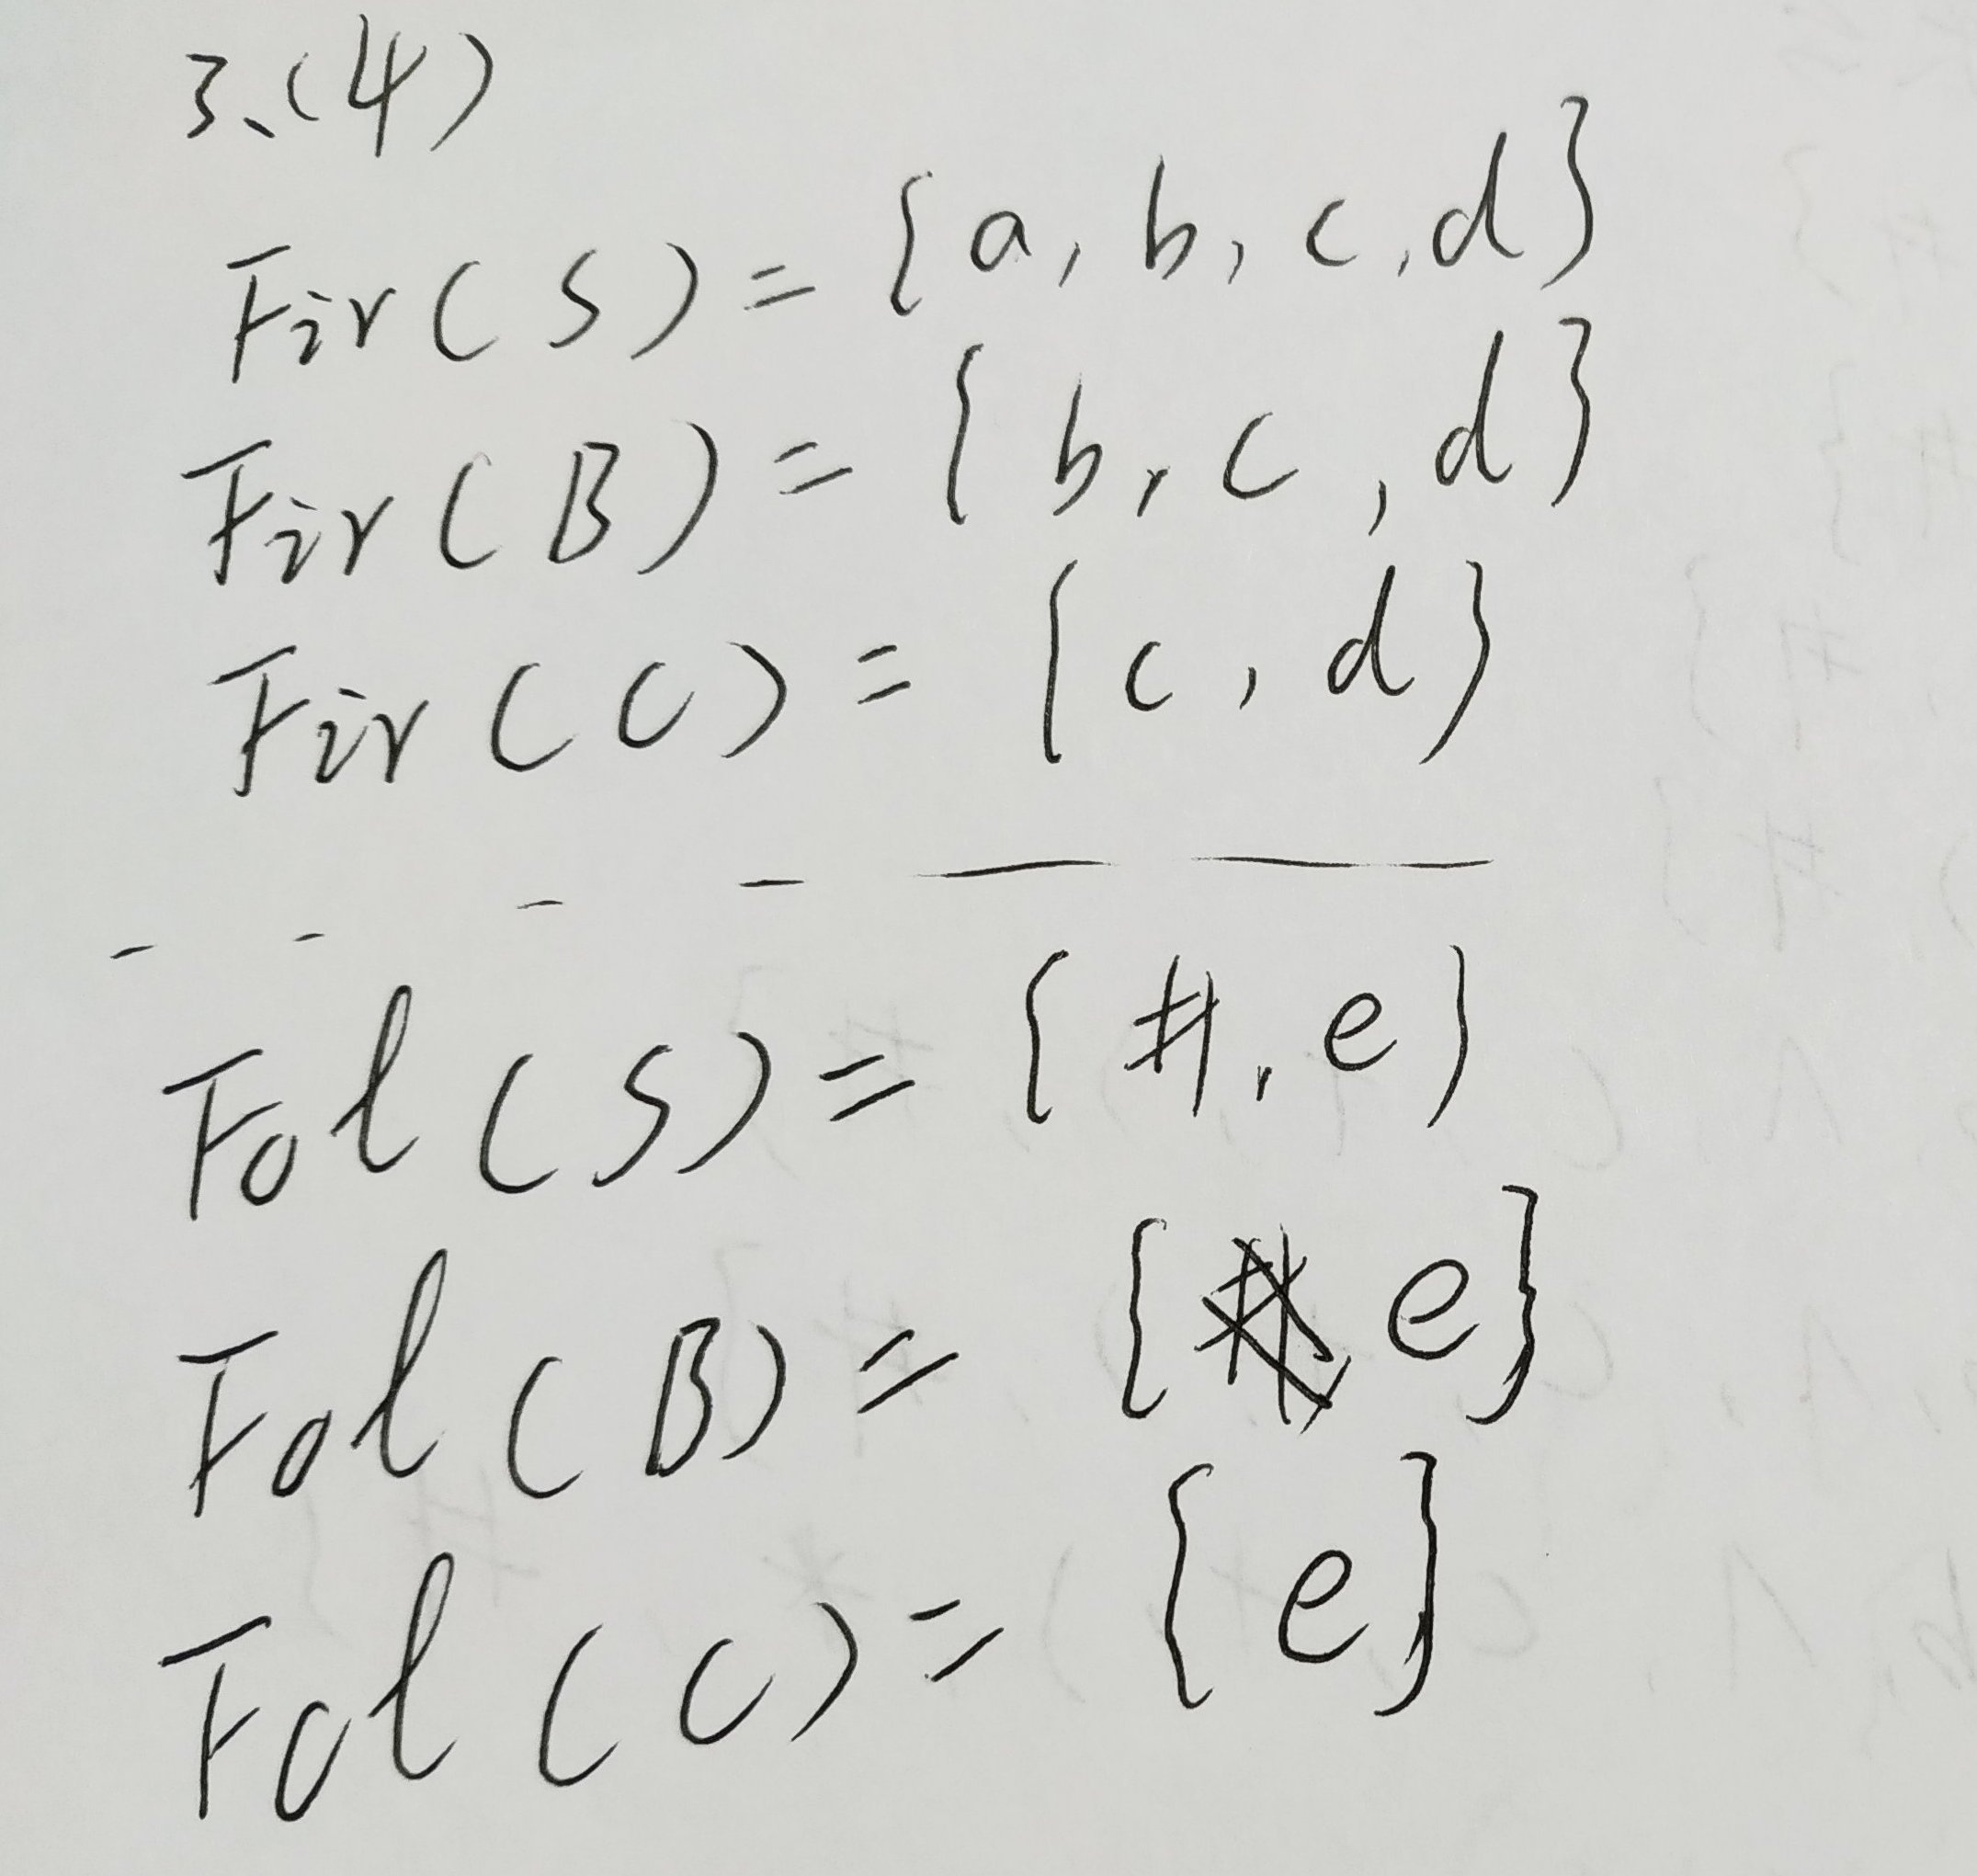 3、(4)
Fir(S) = {a, b, c, d}
Fir(B) = {b, c, d}
Fir(C) = {c, d}
Fol(S) = {#, e}
Fol(B) = {e}
Fol(C) = {e}